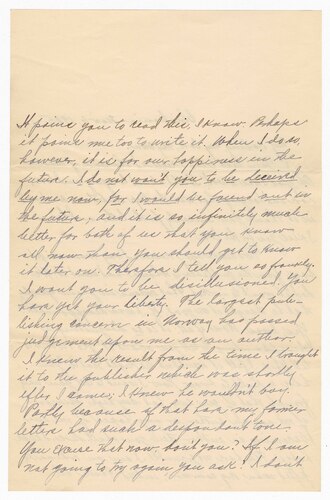 It pains you to read this, I know. Perhaps
it pains me too to write it. When I do so,
however, it is for our happiness in the
future. I do not want you to be deceived
by me now, for I would be found out in
the future, and it is so infinitely much
better for both of us that you know
all now than you should get to know
it later on. Therefore I tell you so frankly.
I want you to be desillusioned. You
have yet your liberty. The largest pub-
lishing concern in Norway has passed
judgement upon me as an author.
I knew the result from the time I brought
it to the publisher which was shortly
after I came; I knew he wouldn't buy.
Partly because of that has my former
letters had such a despondent tone.
You excuse that now, don't you? If I am
not going to try again you ask? I don't